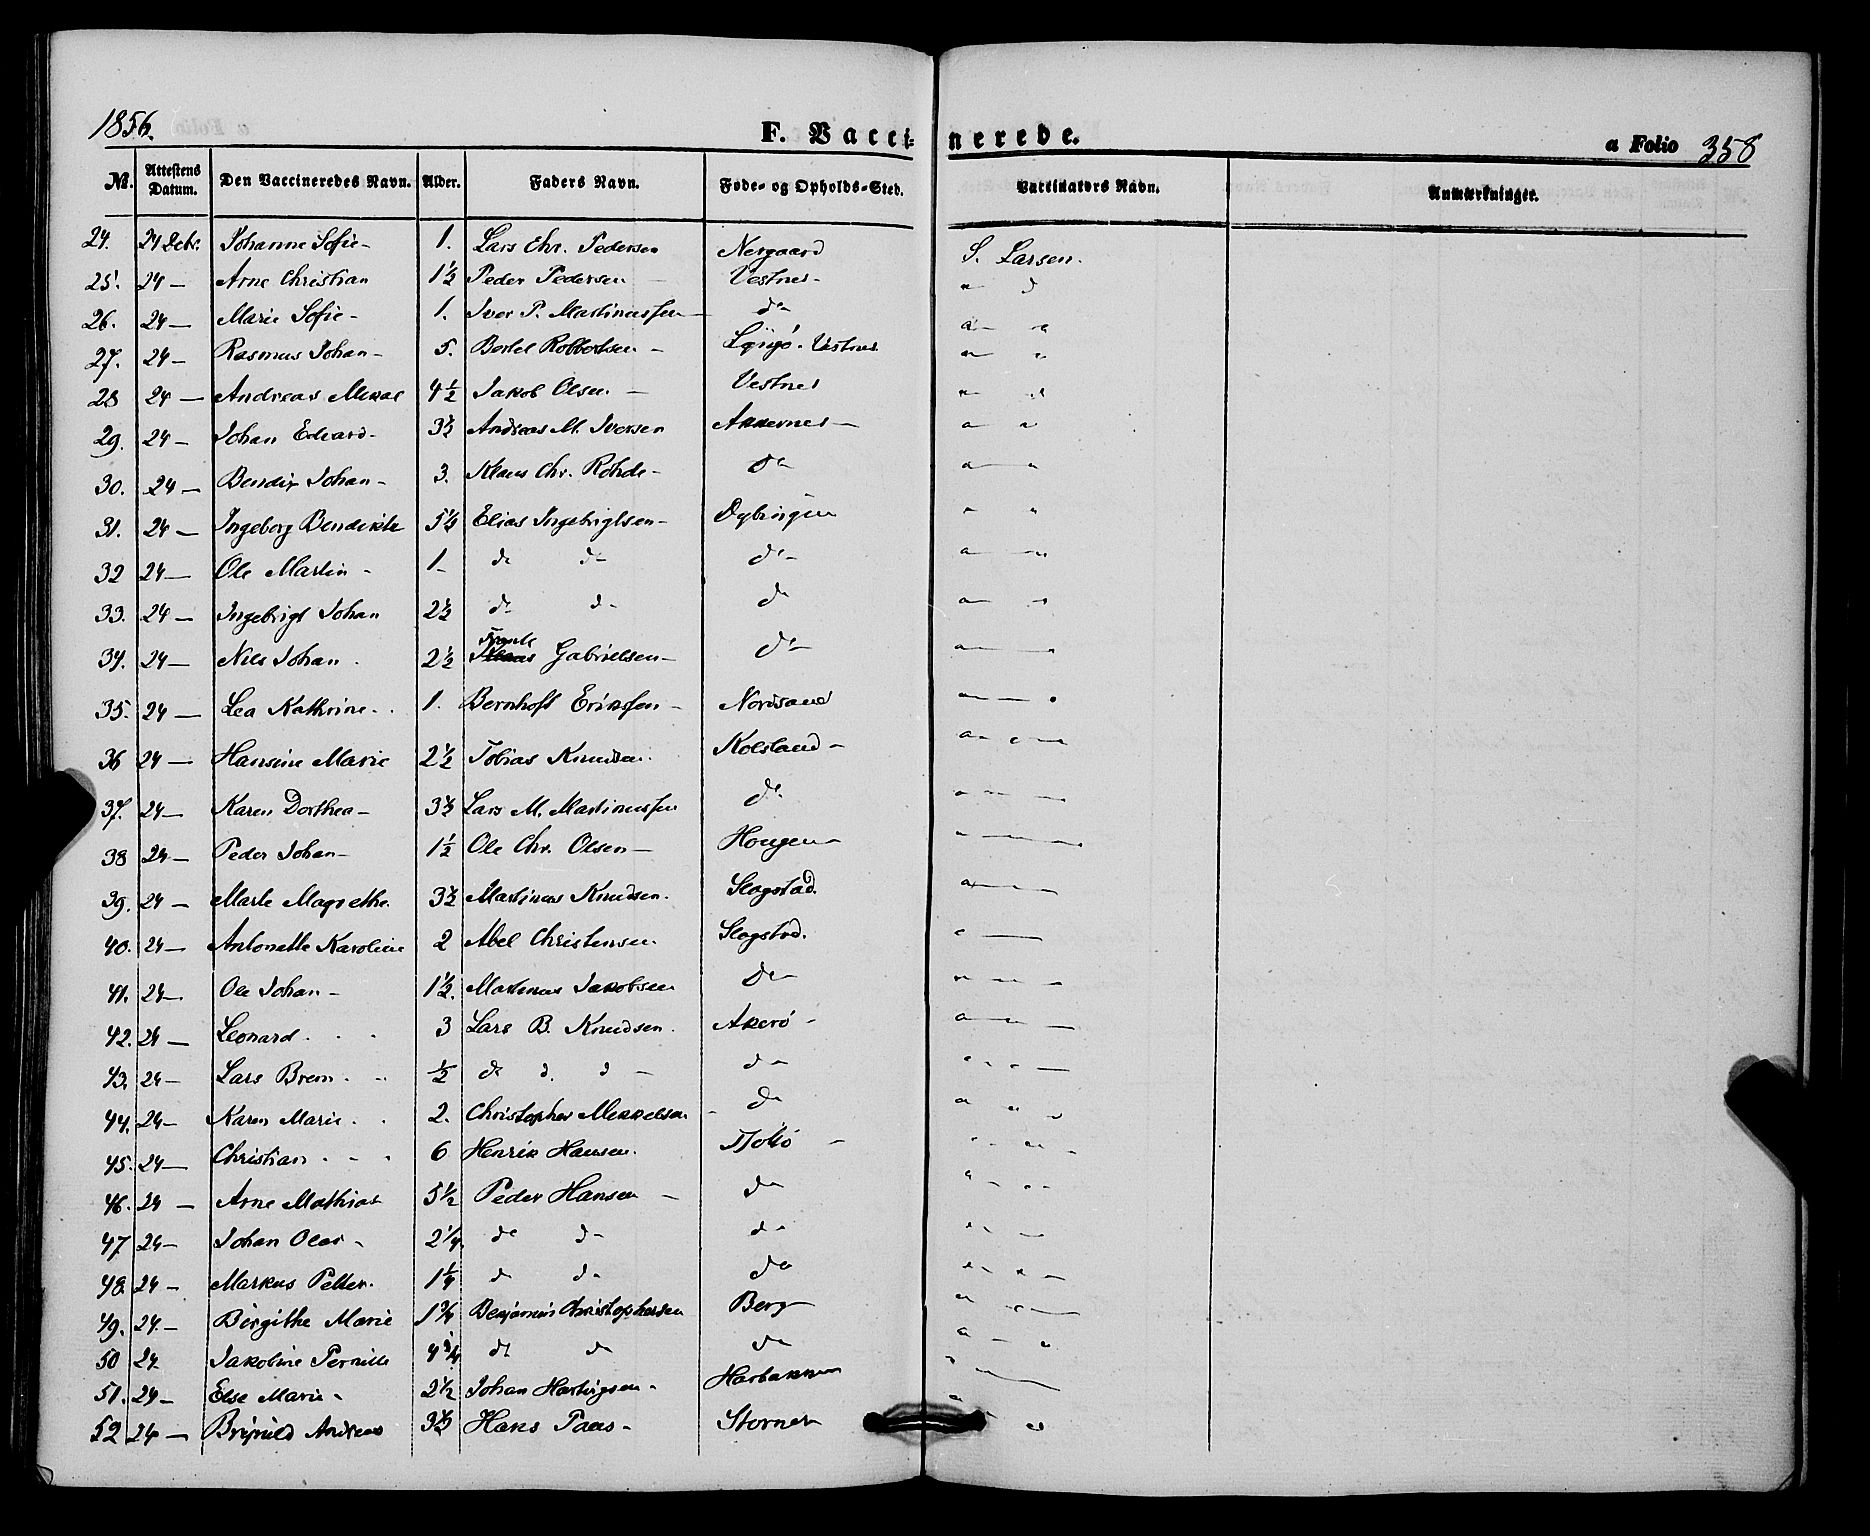 1856.
F. Vaccinerede.
a Folio 358
№. Attestens Datum. Den Vaccineredes Navn. Alder. Faders Navn. Føde- og Opholds-Sted. Vaccinators Navn. Anmærkninger.
24. 24 Johanne Sofie - 1. Lars Chr. Pedersen Nergaard S. Larsen.
25. 24 - Arne Christian 1½ Peder Pedersen Vestnes - " d
26. 24 - Marie Sofie - 1. Iver P. Martinussen - do " "
27. 24 - Rasmus Johan - 5. Bertel Robbertsen - Vestnes " "
28 24 - Andreas Mikal 4½ Jakob Olsen - Vestnes " "
29. 24 - Johan Edvard - 3½ Andreas M. Iversen Akkernes - " "
30. 24 - Bendix Johan - 3. Klaus Chr. Rohde - do " "
31. 24 - Ingeborg Bendikte 5½ Elias Ingebrigtsen - " "
32 24 - Ole Martin - 1 - do do do - " "
33. 24 - Ingebrigt Johan 2½ do do do " "
34. 24 - Nils Johan 2½ Gabrielsen - do " "
35. 24 - Lea Kathrine - 1. Bernhoft Erikssen - Nordsand " "
36 24 - Hansine Marie 2½ Tobias Knudsen Kolsland - " "
37. 24 - Karen Dorthea - 3½ Lars M. Martinussen do " "
38 24 - Peder Johan - 1½ Ole Chr. Olsen - Hougen " "
39. 24 - Marte Magrethe. 3½ Martinus Knudsen. Slogstad. " "
40. 24 - Antonette Karoline 2 Abel Christensen Slogstad. "
41. 24 - Ole Johan - 1½. Martinus Jakobsen do " "
42. 24 - Leonard 3 Lars B. Knudsen. Akerö - " "
43. 24 - Lars Brem ½ do d. d - do " "
44. 24 - Karen Marie 2. Christopher Mikkelsen - do " "
45. 24 - Christian - - 6 Henrik Hansen. - " "
46. 24 - Arne Mathias 5½ Peder Hansen - do " "
47 24 - Johan Olai - 2¼ do do do " "
48. 24 - Markus Petter. 1¼ do do do " "
49. 24 - Birgithe Marie 1¾ Benjamin Christophersen Berg " "
50 24 Jakobine Pernille 4¾ do do do " "
51. 24 - Else Marie - 2½ Johan Hartvigsen - Harbakken "
52 24 - Andreas 3½ Hans Paas - Stornes "